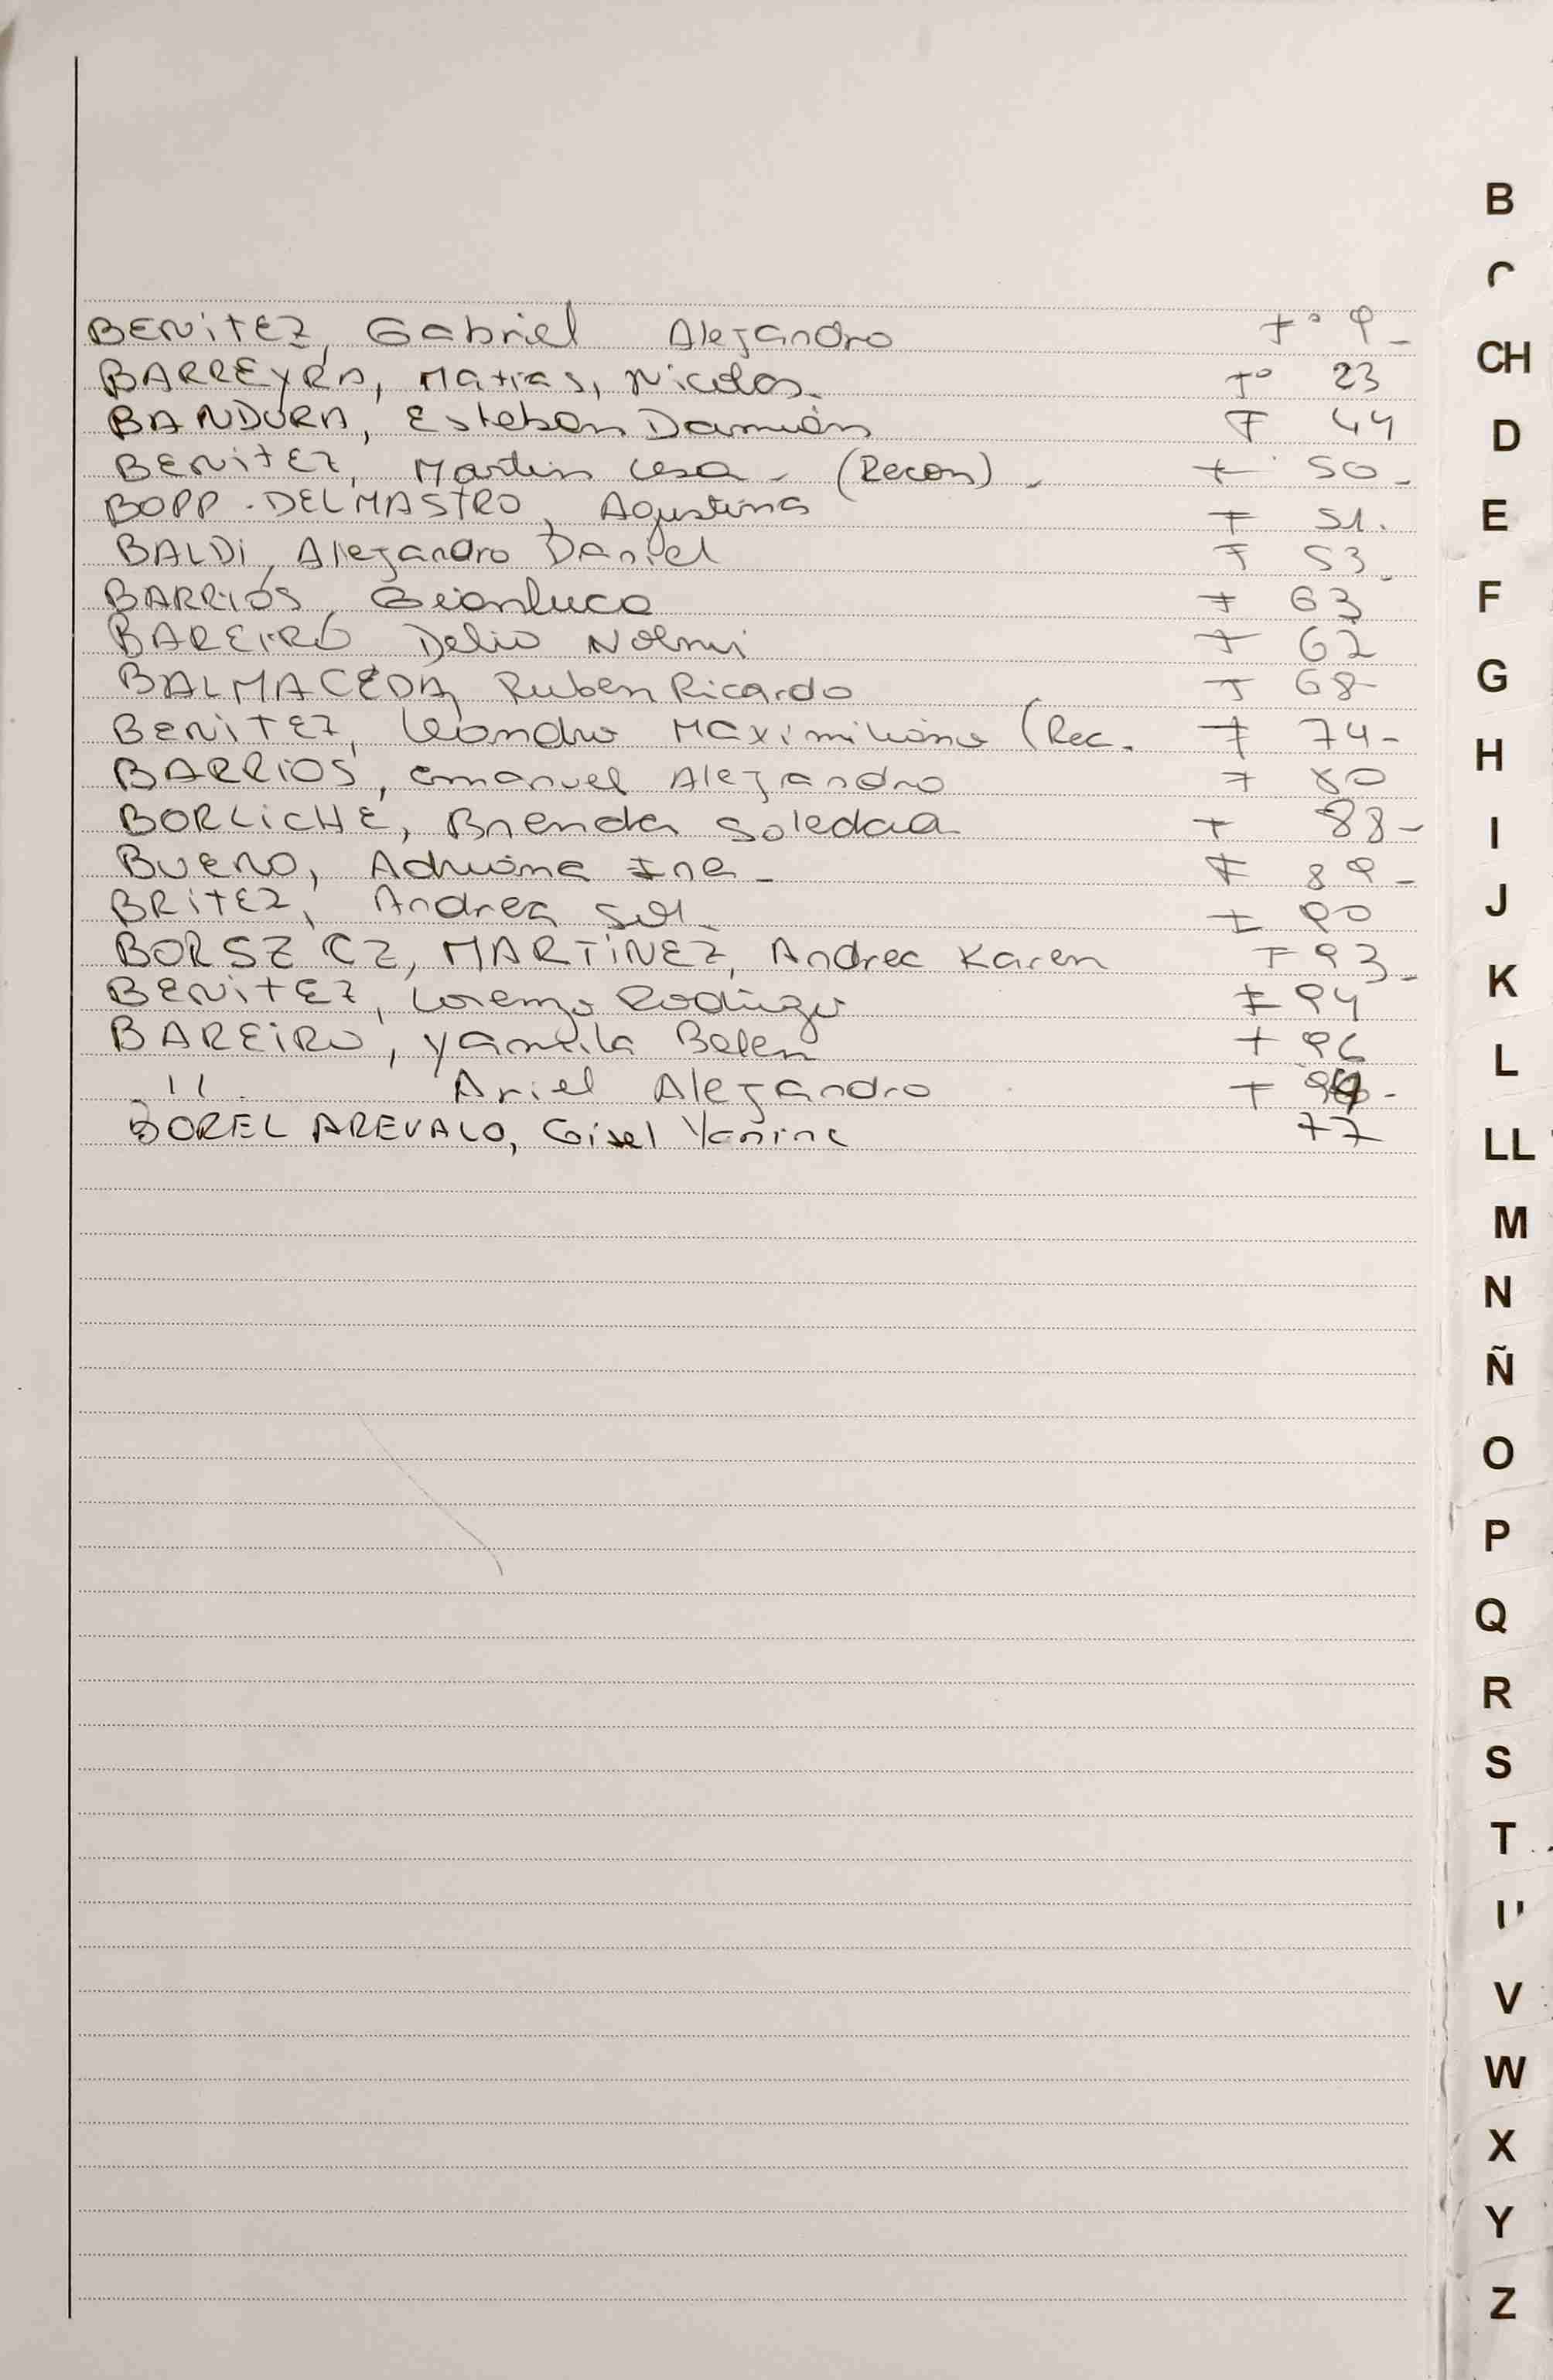 B
CH
D
E
F
G
H
I
J
K
L
LL
M
N
Ñ
O
P
Q
R
S
T
V
W
X
Y
Z
BENITEZ, Gabriel Alejandro Fº 9-
BARREYRA, Matias, Nicolas. Fº 23
BANDURA, Esteban Damián F 44
BENITEZ, Martin Cesa - (Recon) - F 50-
BOPP-DELMASTRO, Agustina F 51.
BALDI, Alejandro Daniel F 53-
BARRIOS, Gianluca F 63
BAREIRO Delio Noemi F 62
BALMACEDA, Ruben Ricardo F 68-
BENITEZ, Leandro Maximiliano (Rec. F 74-
BARRIOS, Emanuel Alejandro F 80
BORLICHE, Brenda Soledad F 88-
BUENO, Adriana Ine- F 89-
BRITEZ, Andrea Sol F 90
BORSZ CZ, MARTINEZ, Andrea Karen F 93-
BENITEZ, Lorenzo Rodrigo F 94
BAREIRO, Yamila Belen F 96
" Ariel Alejandro F
BOREL AREVALO, Gisel Yanina 77